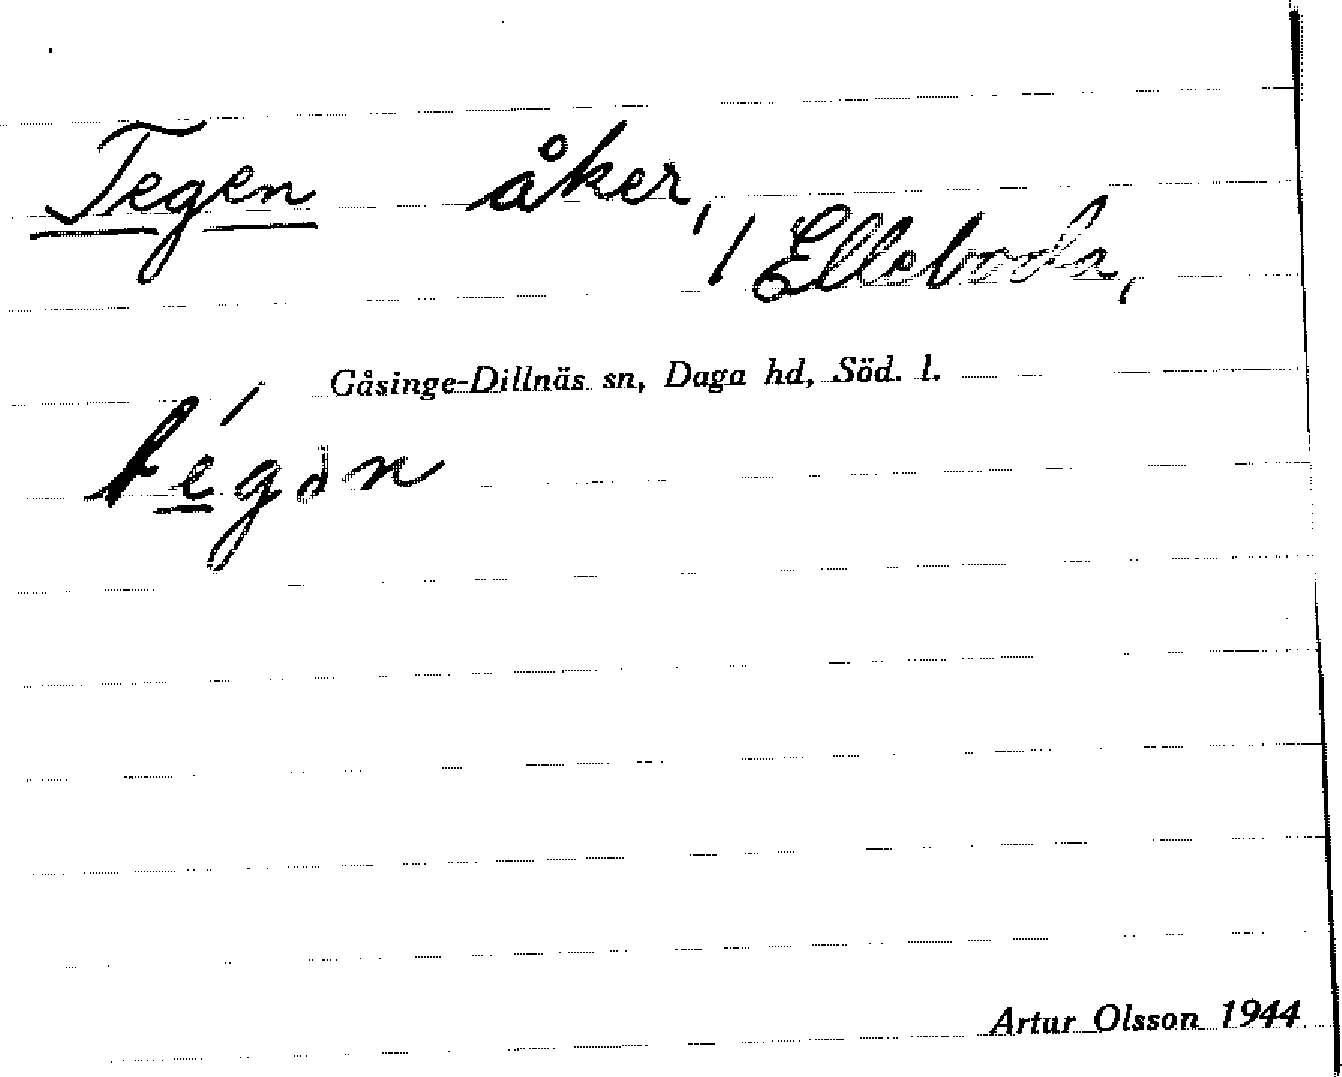 Tegen åker, / Elleboda,
Gåsinge-Dillnäs sn, Daga hd, Söd. l.
té̱gən
Artur Olsson 1944